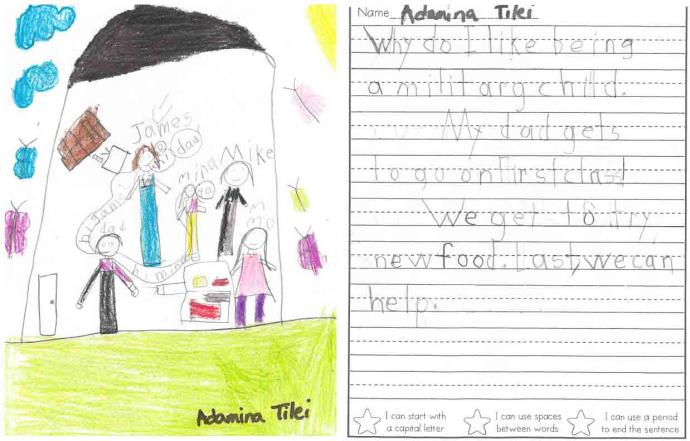 James
dad
mina
Mike
dad
Adamina Tilei
Name Adamina Tilei
Why do I like being
a military child.
My dad gets
to go on first class!
We get to try
new food. Last, we can
help.
I can start with
a capital letter
I can use spaces
between words
I can use a period
to end the sentence